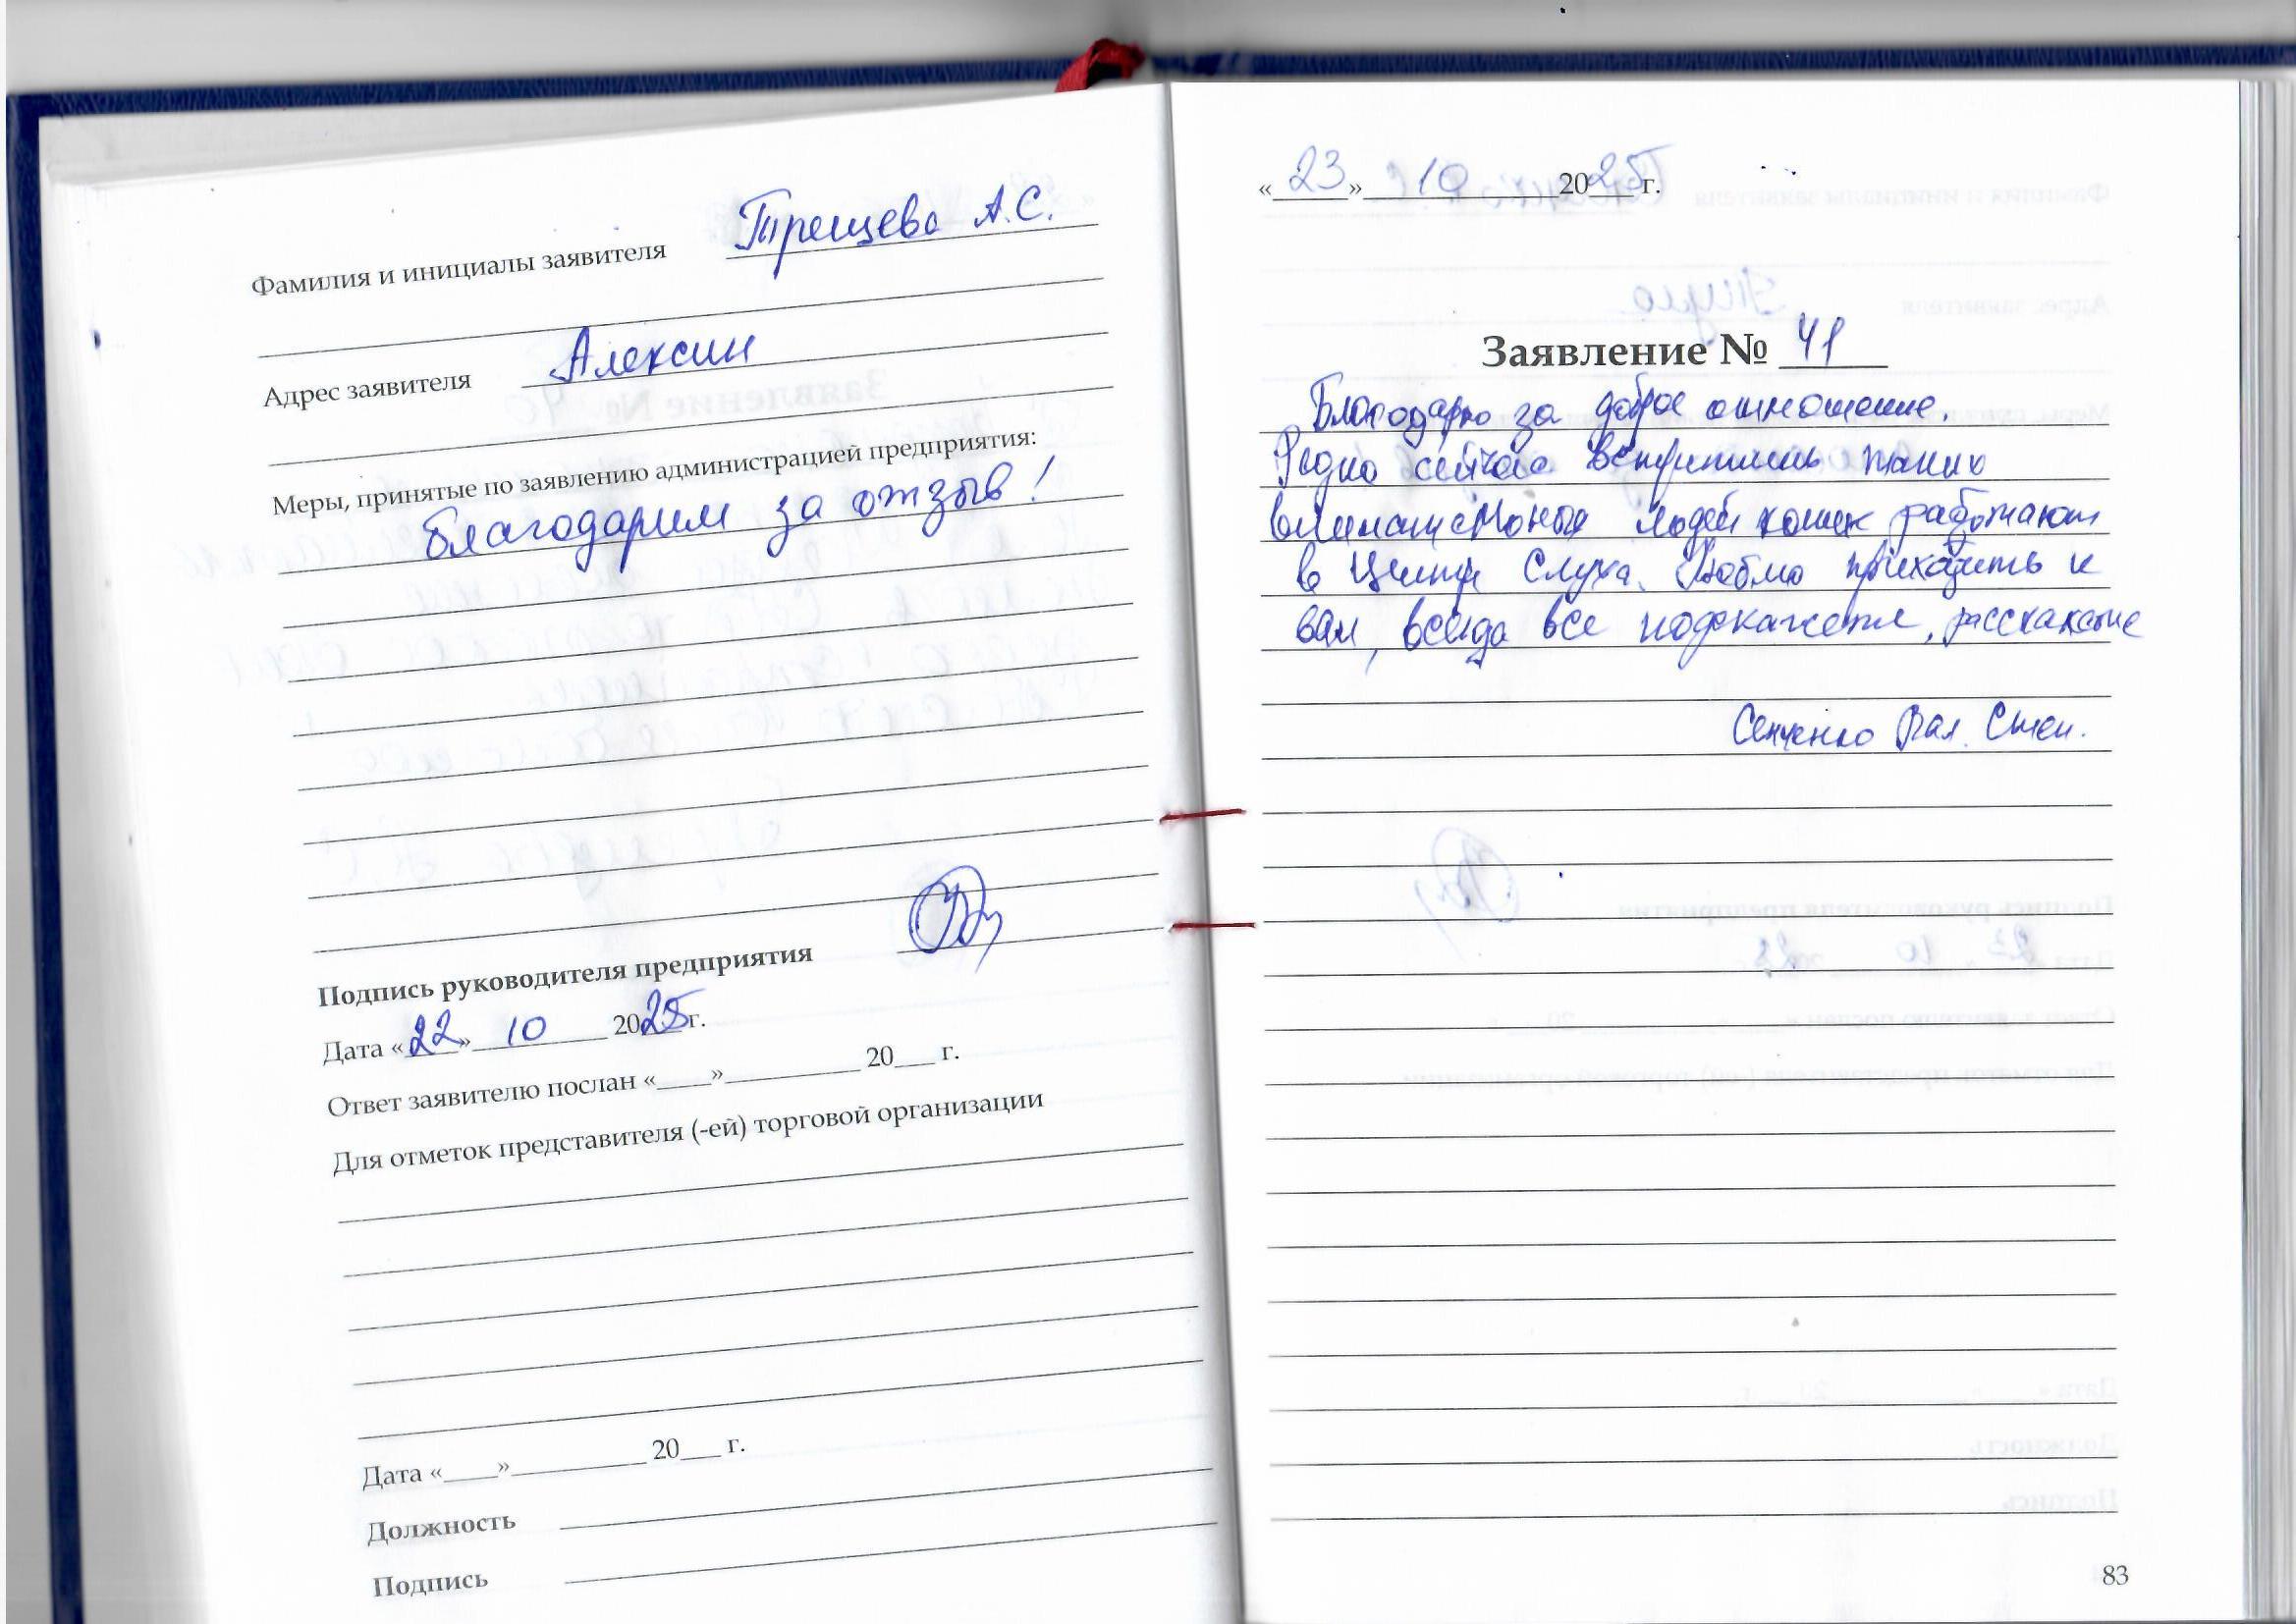 Фамилия и инициалы заявителя Трещева А.С.
Адрес заявителя Алексин
Меры, принятые по заявлению администрацией предприятия:
Благодарим за отзыв!
Подпись руководителя предприятия
Дата «22» 10 2025 г.
Ответ заявителю послан «____»__________ 20___ г.
Для отметок представителя (-ей) торговой организации
Дата «____»__________ 20___ г.
Должность
Подпись
«23» 10 2025 г.
Заявление № 41
Благодарю за доброе отношение.
Редко сейчас встретишь таких
внимательных людей какие работают
в Центре Слуха. Люблю приходить к
вам, всегда все подскажете, расскажете
Сенченко Вал. Степ.
83